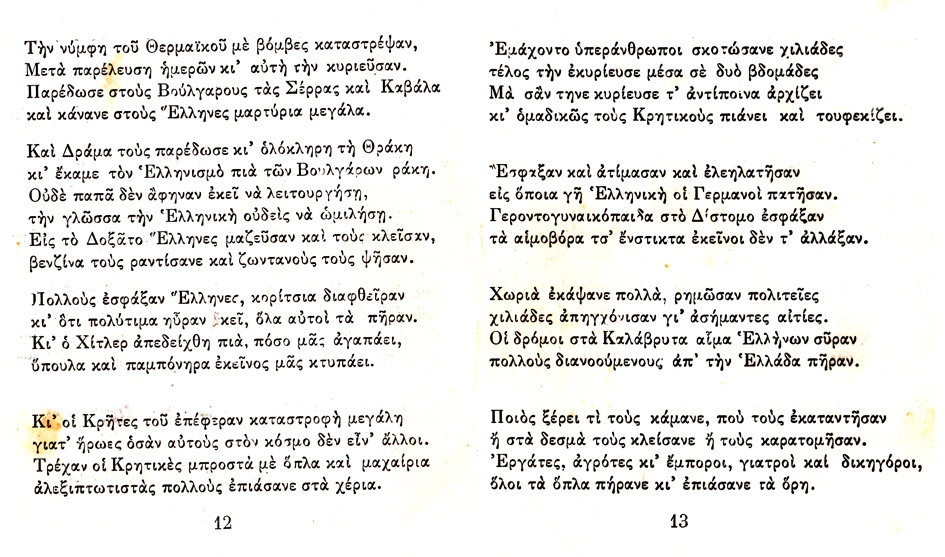 Τὴν νύμφη τοῦ Θερμαϊκοῦ μὲ βόμβες καταστρέψαν,
Μετὰ παρέλευση ἡμερῶν κι' αὐτὴ τὴν κυριεῦσαν.
Παρέδωσε στοὺς Βούλγαρους τὰς Σέρρας καὶ Καβάλα
καὶ κάνανε στοὺς Ἕλληνες μαρτύρια μεγάλα.
Καὶ Δράμα τοὺς παρέδωσε κι' ὁλόκληρη τὴ Θράκη
κι' ἔκαμε τὸν Ἑλληνισμὸ πιὰ τῶν Βουλγάρων ράκη.
Οὐδὲ παπᾶ δὲν ἄφηναν ἐκεῖ νὰ λειτουργήσῃ,
τὴν γλῶσσα τὴν Ἑλληνικὴ οὐδεὶς νὰ ὡμιλήσῃ.
Εἰς τὸ Δοξᾶτο Ἕλληνες μαζεῦσαν καὶ τοὺς κλεῖσαν,
βενζίνα τοὺς ραντίσανε καὶ ζωντανοὺς τοὺς ψῆσαν.
Πολλοὺς ἐσφάξαν Ἕλληνες, κορίτσια διαφθεῖραν
κι' ὅτι πολύτιμα ηὗραν ἐκεῖ, ὅλα αὐτοὶ τὰ πῆραν.
Κι' ὁ Χίτλερ ἀπεδείχθη πιὰ, πόσο μᾶς ἀγαπάει,
ὕπουλα καὶ παμπόνηρα ἐκεῖνος μᾶς κτυπάει.
Κι' οἱ Κρῆτες τοῦ ἐπέφεραν καταστροφὴ μεγάλη
γιατ' ἥρωες ὁσὰν αὐτοὺς στὸν κόσμο δὲν εἶν' ἄλλοι.
Τρέχαν οἱ Κρητικὲς μπροστὰ μὲ ὅπλα καὶ μαχαίρια
ἀλεξιπτωτιστὰς πολλοὺς ἐπιάσανε στὰ χέρια.
12
Ἐμάχοντο ὑπεράνθρωποι σκοτώσανε χιλιάδες
τέλος τὴν ἐκυρίευσε μέσα σὲ δυὸ βδομάδες
Μὰ σὰν τηνε κυρίευσε τ' ἀντίποινα ἀρχίζει
κι' ὁμαδικῶς τοὺς Κρητικοὺς πιάνει καὶ τουφεκίζει.
Ἔσφαξαν καὶ ἀτίμασαν καὶ ἐλεηλατῆσαν
εἰς ὅποια γῆ Ἑλληνικὴ οἱ Γερμανοὶ πατῆσαν.
Γεροντογυναικόπαιδα στὸ Δίστομο ἐσφάξαν
τὰ αἱμοβόρα τσ' ἔνστικτα ἐκεῖνοι δὲν τ' ἀλλάξαν.
Χωριὰ ἐκάψανε πολλὰ, ρημῶσαν πολιτεῖες
χιλιάδες ἀπηγχόνισαν γι' ἀσήμαντες αἰτίες.
Οἱ δρόμοι στὰ Καλάβρυτα αἷμα Ἑλλήνων σῦραν
πολλοὺς διανοούμενους ἀπ' τὴν Ἑλλάδα πῆραν.
Ποιὸς ξέρει τὶ τοὺς κάμανε, ποὺ τοὺς ἐκαταντῆσαν
ἢ στὰ δεσμὰ τοὺς κλείσανε ἢ τοὺς καρατομῆσαν.
Ἐργάτες, ἀγρότες κι' ἔμποροι, γιατροὶ καὶ δικηγόροι,
ὅλοι τὰ ὅπλα πήρανε κι' ἐπιάσανε τὰ ὄρη.
13